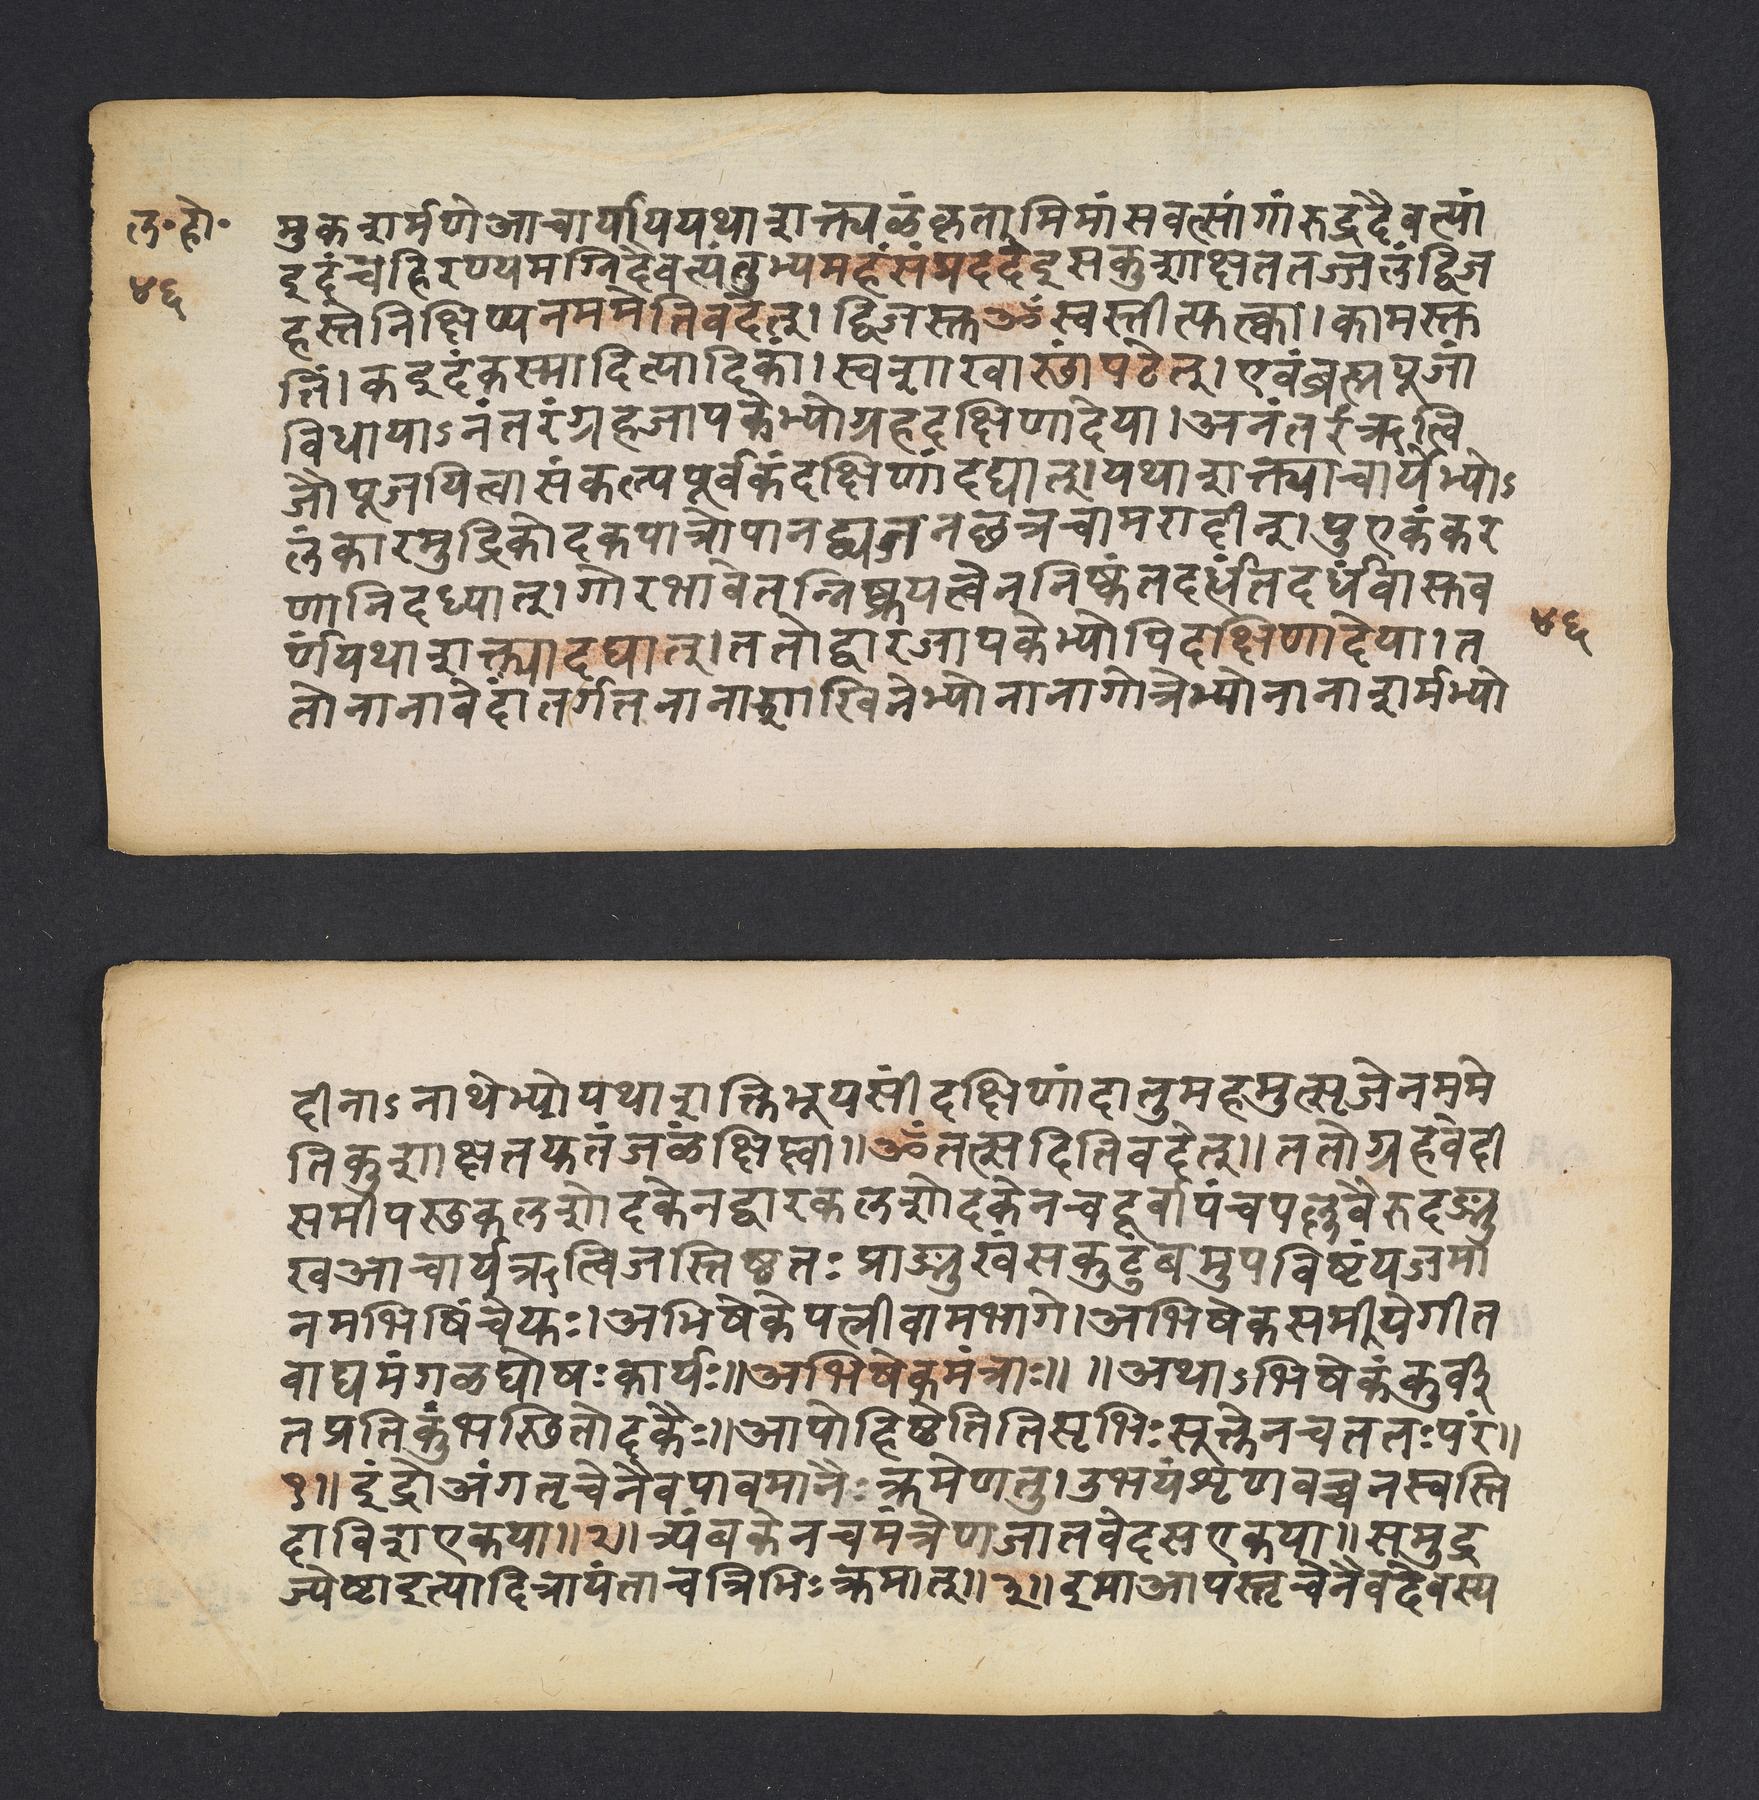 ल॰हो॰
४६
मुकशर्मणेआचार्याययथाशक्त्यळंकृतामिमांसवत्सांगांरुद्रदैवत्यां
इदंचहिरण्यमग्निदैवत्यंतुभ्यमहंसंप्रददेइसकुशाक्षततज्जलंद्विज
हस्तेनिक्षिप्यनममेतिवदेत्। द्विजस्तुॐस्वस्तीत्युत्क्वा। कामस्तु
तिं। कइदंकस्माादित्यादिकां। स्वशाखास्छांपठेत्। एवंब्रह्मपूजां
विधायाऽनंतरंग्रहजापकेभ्योग्रहदक्षिणादेया। अनंतरंऋत्वि
जौपूजयित्वासंकल्पपूर्वकंदक्षिणांदद्यात्। यथाशक्त्याचार्येभ्योऽ
लंकारमुद्रिकोदकपात्रोपानद्व्यजनछत्रचामरादीन्। पुएकंकर
णानिदध्यात्। गोरभावेतन्निष्क्रयत्वेननिष्कंतदर्धंतदर्धंवास्तव
र्णंयथाशक्त्यादद्यात्। ततोद्वारजापकेभ्योपिदक्षिणादेया। त
तोनानावेदांतर्गतनानाशाखिनेभ्योनानागोत्रेभ्योनानाशर्मभ्यो
४६
दीनाऽनाथेभ्योयथाशक्तिभूयसींदक्षिणांदातुमहमुत्सृजेनममे
तिकुशाक्षतयुतंजळंक्षिप्त्वा॥ ॐतत्सदितिवदेत्॥ ततोग्रहवेदी
समीपस्छकलशोदकेनद्वारकलशोदकेनचदूर्वापंचपल्लवैरुदङ्मु
खआचार्यऋत्विजस्तिष्ठतः प्राङ्मुखंसकुटुंबमुपविष्टंयजमा
नमभिषिंचेयुः। अभिषेकेपत्नीवामभागे। अभिषेकसमीयेगीत
वाद्यमंगळघोषः कार्यः॥ अभिषेकमंत्राः॥ ॥ अथाऽभिषेकंकुर्वी
तप्रतिकुंभस्छितोदकैः॥ आपोहिष्ठेतितिसृभिः सूक्तेनचततः परं॥
१॥ इंद्रोअंगतृचेनैवपावमानैः क्रमेणतु। उभयंशृणवच्चनस्वस्ति
दाविशएकया॥ २॥ त्र्यंबकेनचमंत्रेणजातवेदसएकया॥ समुद्र
ज्येष्टाइत्यादित्रायंताचत्रिभिः क्रमात्॥ ३॥ इमाआपस्तृचेनैवदेवस्य